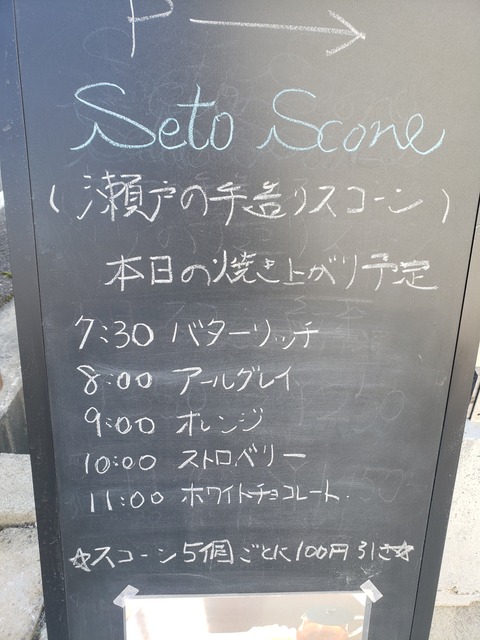 P →
Seto Scone
(瀬戸の手造りスコーン)
本日の焼き上がり予定
7:30 バターリッチ
8:00 アールグレイ
9:00 オレンジ
10:00 ストロベリー
11:00 ホワイトチョコレート
☆スコーン5個ごとに100円引き☆